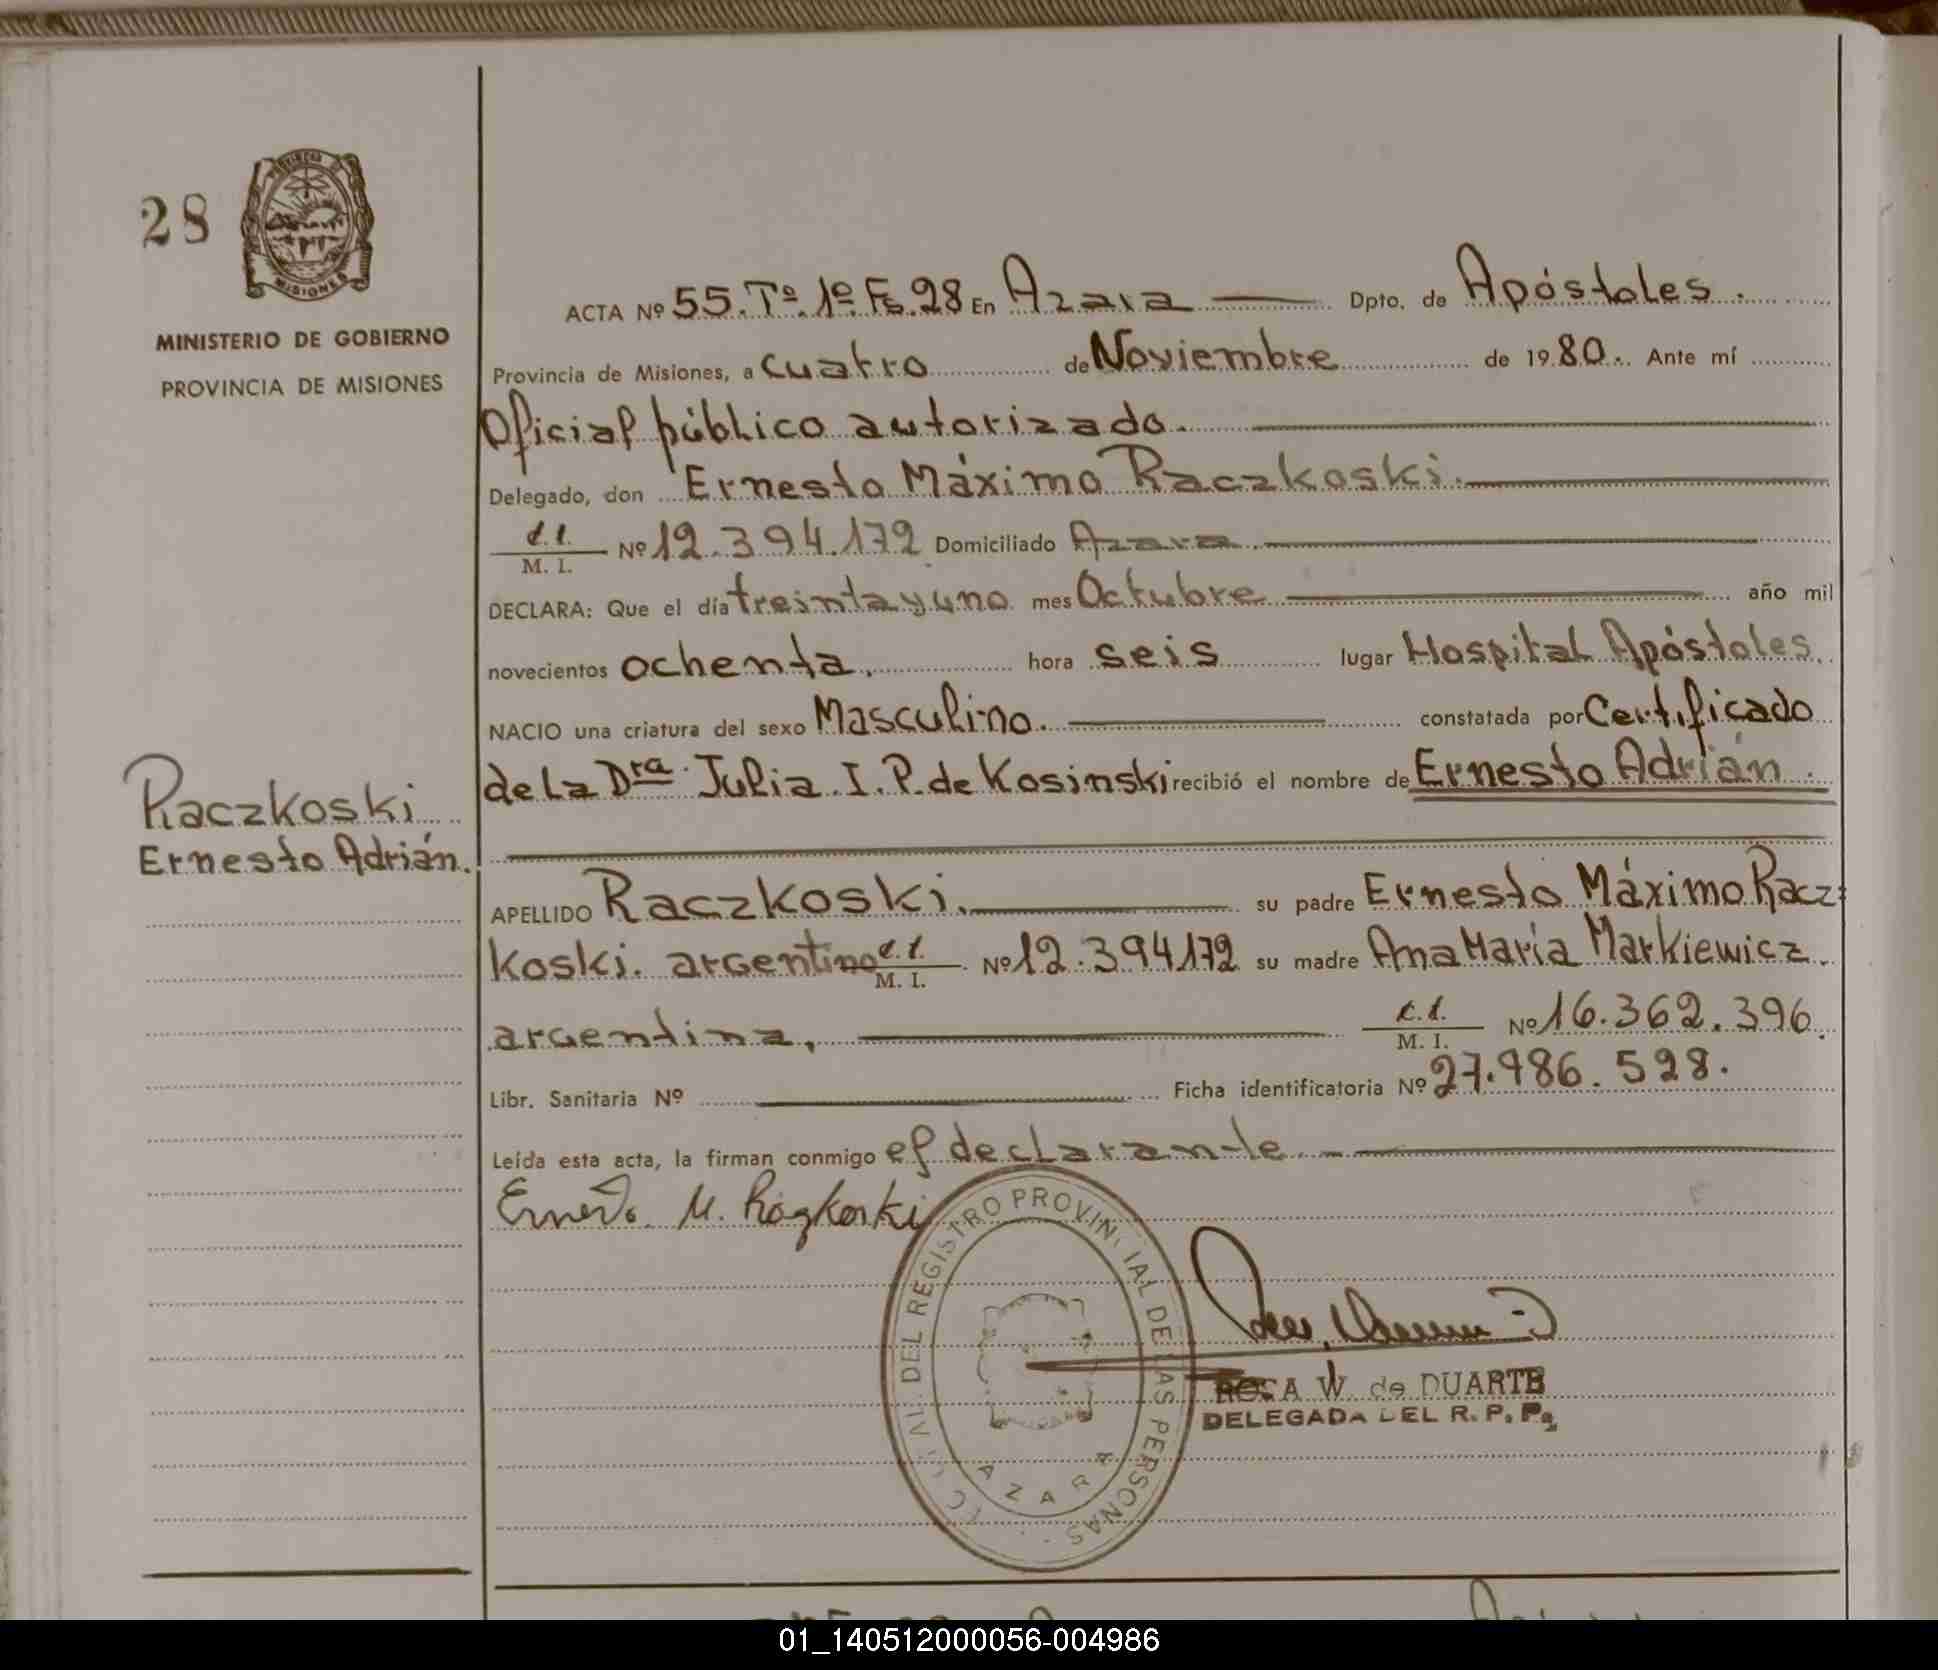 28
MINISTERIO DE GOBIERNO
PROVINCIA DE MISIONES
MISIONES
ACTA Nº 55. Tº. 1º. Fs. 28 En Azara Dpto. de Apóstoles.
Provincia de Misiones, a cuatro de Noviembre de 1980. Ante mí
Oficial público autorizado.
Delegado, don Ernesto Máximo Raczkoski.
c.i. M. I. Nº 12.394.172 Domiciliado Azara
DECLARA: Que el día treinta y uno mes Octubre año mil
novecientos ochenta, hora seis lugar Hospital Apóstoles.
NACIO una criatura del sexo Masculino. constatada por Certificado
de la Dra. Julia. I. P. de Kosinski recibió el nombre de Ernesto Adrián.
Raczkoski
Ernesto Adrián.
APELLIDO Raczkoski. su padre Ernesto Máximo Racz-
koski. argentino c.i. M. I. Nº 12.394.172 su madre Ana María Markiewicz.
argentina, c.i. M. I. Nº 16.362.396.
Libr. Sanitaria Nº Ficha identificatoria Nº 27.986.528.
Leída esta acta, la firman conmigo el declarante.
Ernesto M. Raczkoski
DEL REGISTRO PROVINCIAL DE LAS PERSONAS
AZARA
ROSA W. de DUARTE
DELEGADA DEL R. P. P.
01_140512000056-004986